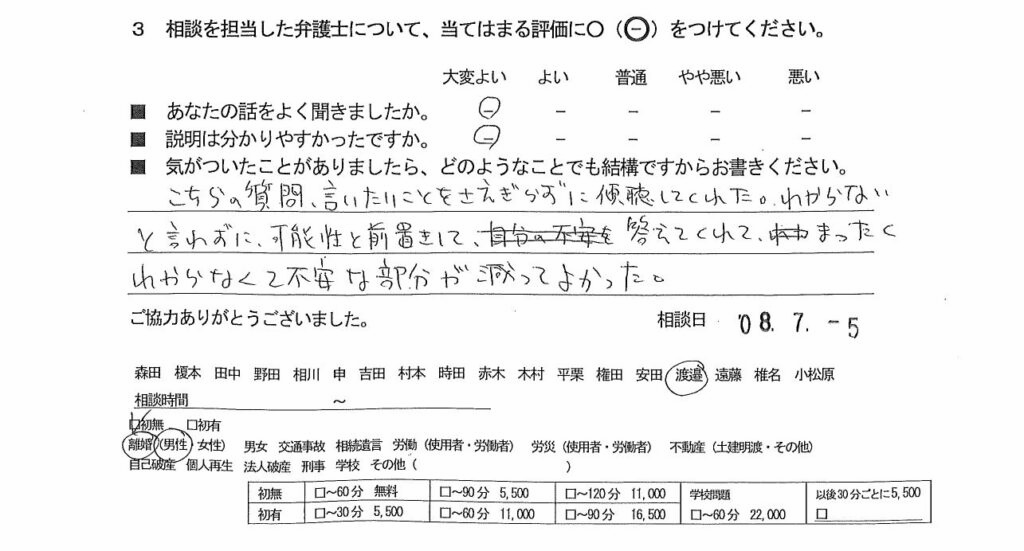 3 相談を担当した弁護士について、当てはまる評価に〇(㊀)をつけてください。
大変よい よい 普通 やや悪い 悪い
■ あなたの話をよく聞きましたか。 ㊀ − − − −
■ 説明は分かりやすかったですか。 ㊀ − − − −
■ 気がついたことがありましたら、どのようなことでも結構ですからお書きください。
こちらの質問、言いたいことをさえぎらずに傾聴してくれた。わからない
と言わずに、可能性と前置きして、自分の不安を 答えてくれて、まったく
わからなくて不安な部分が減ってよかった。
ご協力ありがとうございました。 相談日 '08.7.-5
森田 榎本 田中 野田 相川 申 吉田 村本 時田 赤木 木村 平栗 権田 安田 渡邉 遠藤 椎名 小松原
相談時間 ～
☑初無 □初有
離婚(男性・女性) 男女 交通事故 相続遺言 労働(使用者・労働者) 労災(使用者・労働者) 不動産(土建明渡・その他)
自己破産 個人再生 法人破産 刑事 学校 その他( )
初無 □～60分 無料 □～90分 5,500 □～120分 11,000 学校問題 以後30分ごとに5,500
初有 □～30分 5,500 □～60分 11,000 □～90分 16,500 □～60分 22,000 □